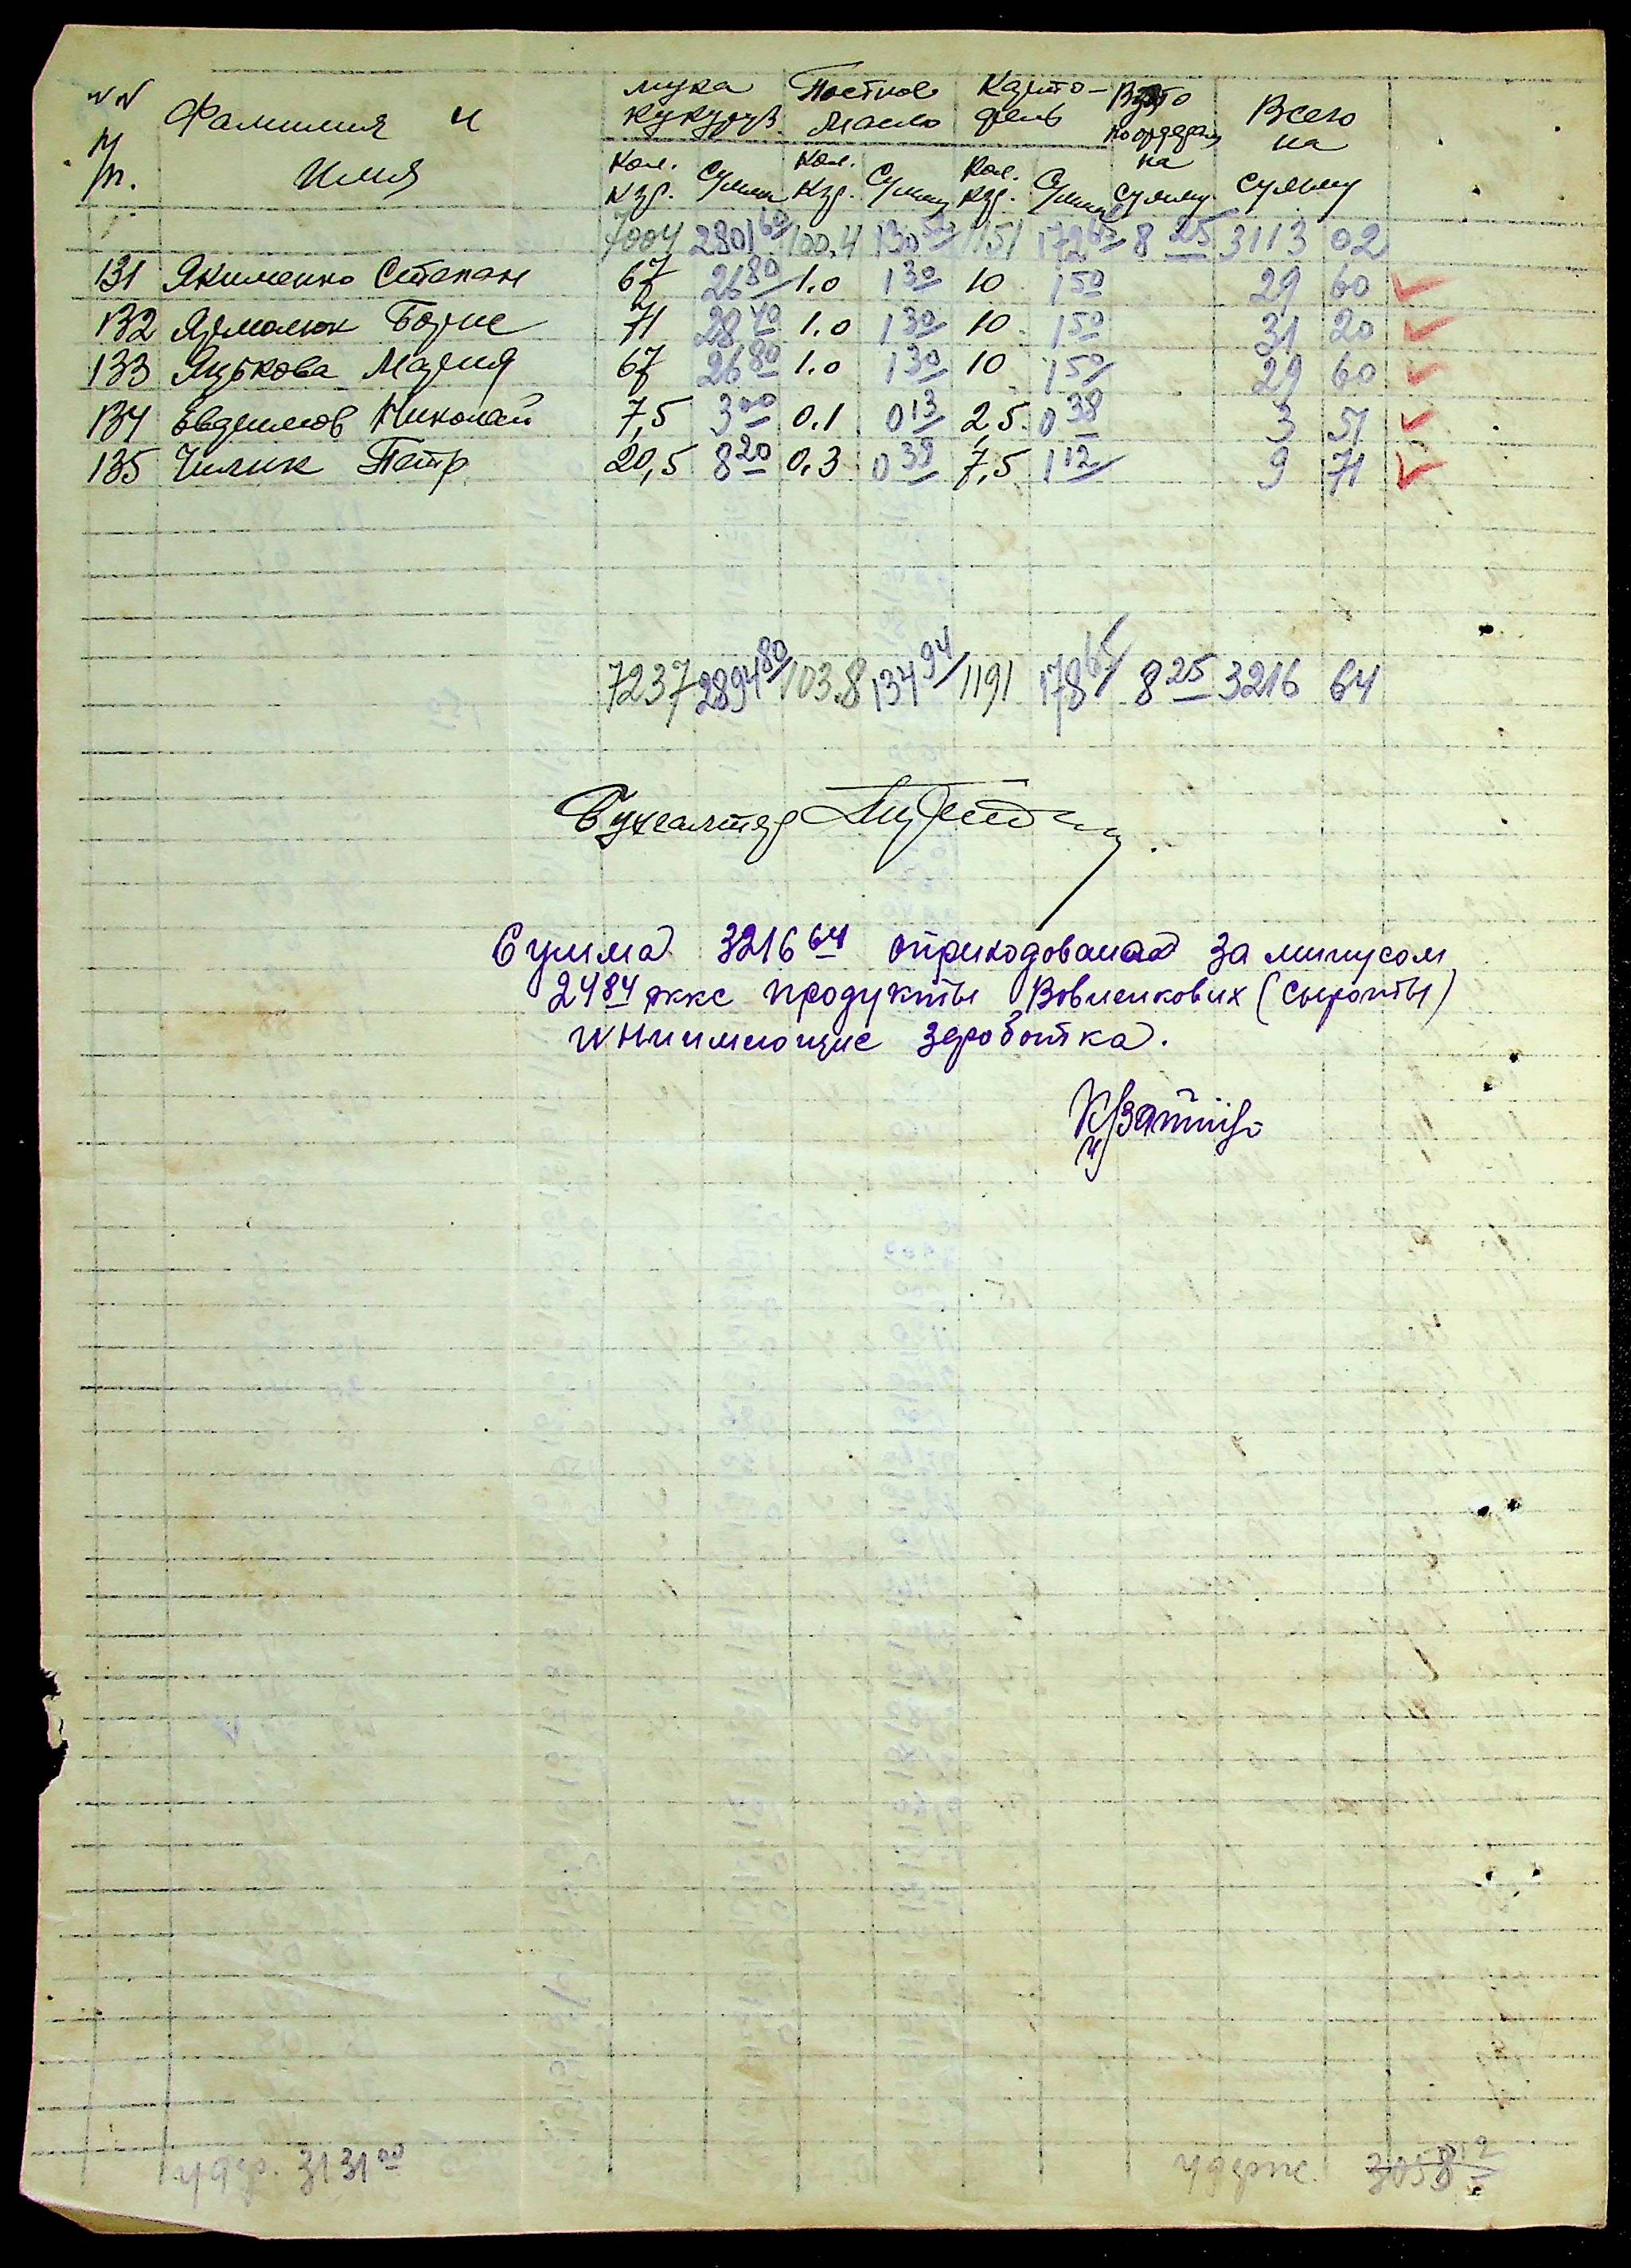 NN п/п. Фамилия и Имя мука кукуруз. Постное масло Карто-фель Взято по ордерам на сумму Всего на сумму
Кол. кгр. Сумма Кол. кгр. Сумму Кол. кгр. Сумму
7004 2801 60 100.4 130 52 1151 172 65 8 25 3113 02
131 Якименко Степан 67 26 80 1.0 1 30 10 1 50 29 60
132 Ярмолюк Борис 71 28 40 1.0 1 30 10 1 50 31 20
133 Яцькова Мария 67 26 80 1.0 1 30 10 1 50 29 60
134 Евдеимов Николай 7,5 3 00 0.1 0 13 2,5 0 38 3 51
135 Чилик Петр 20,5 8 20 0.3 0 39 7,5 1 12 9 71
7237 2894 80 103.8 134 94 1191 178 65 8 25 3216 64
Бухгалтер
Сумма 3216 64 оприходованая за минусом
24 84 продукты Вовненкових (сыроты)
заработка.
удер. 3131 00 удерж. 3058